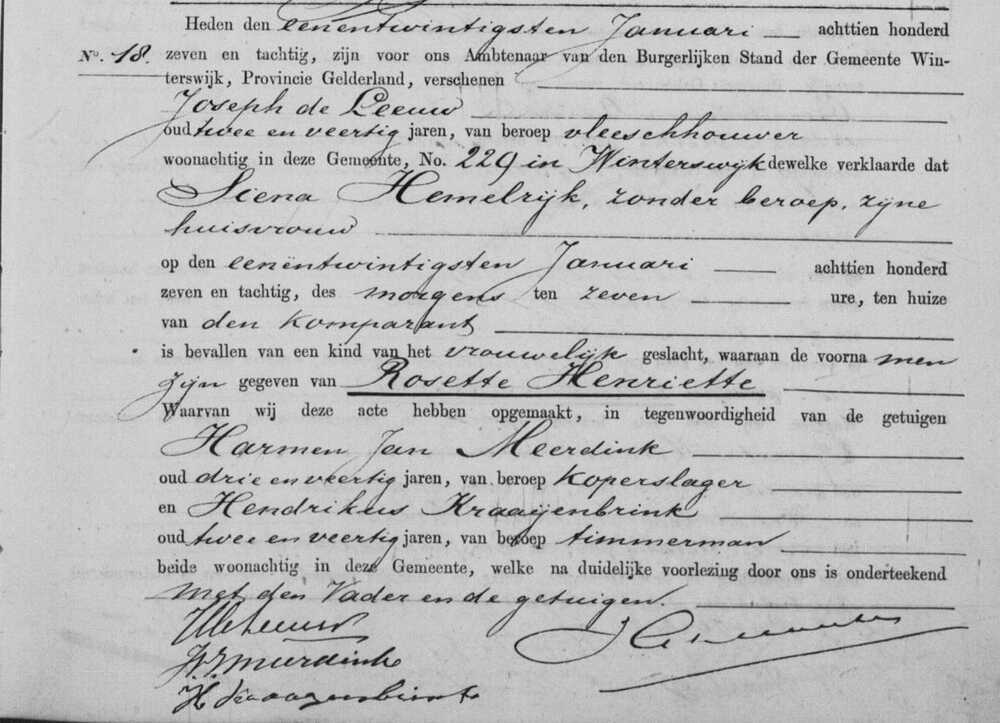 Heden den eenentwintigsten Januari achttien honderd
No. 18. zeven en tachtig, zijn voor ons Ambtenaar van den Burgerlijken Stand der Gemeente Win-
terswijk, Provincie Gelderland, verschenen
Joseph de Leeuw
oud twee en veertig jaren, van beroep vleeschhouwer
woonachtig in deze Gemeente, No. 229 in Winterswijk dewelke verklaarde dat
Siena Hemelrijk, zonder beroep, zijne
huisvrouw
op den eenëntwintigsten Januari achttien honderd
zeven en tachtig, des morgens ten zeven ure, ten huize
van den komparant
is bevallen van een kind van het vrouwelijk geslacht, waaraan de voorna men
zijn gegeven van Rosette Henriette
Waarvan wij deze acte hebben opgemaakt, in tegenwoordigheid van de getuigen
Harmen Jan Meerdink
oud drie en veertig jaren, van beroep koperslager
en Hendrikus Kraaijenbrink
oud twee en veertig jaren, van beroep timmerman
beide woonachtig in deze Gemeente, welke na duidelijke voorlezing door ons is onderteekend
met den Vader en de getuigen.
J de Leeuw
H J Meerdink
H Kraaijenbrink